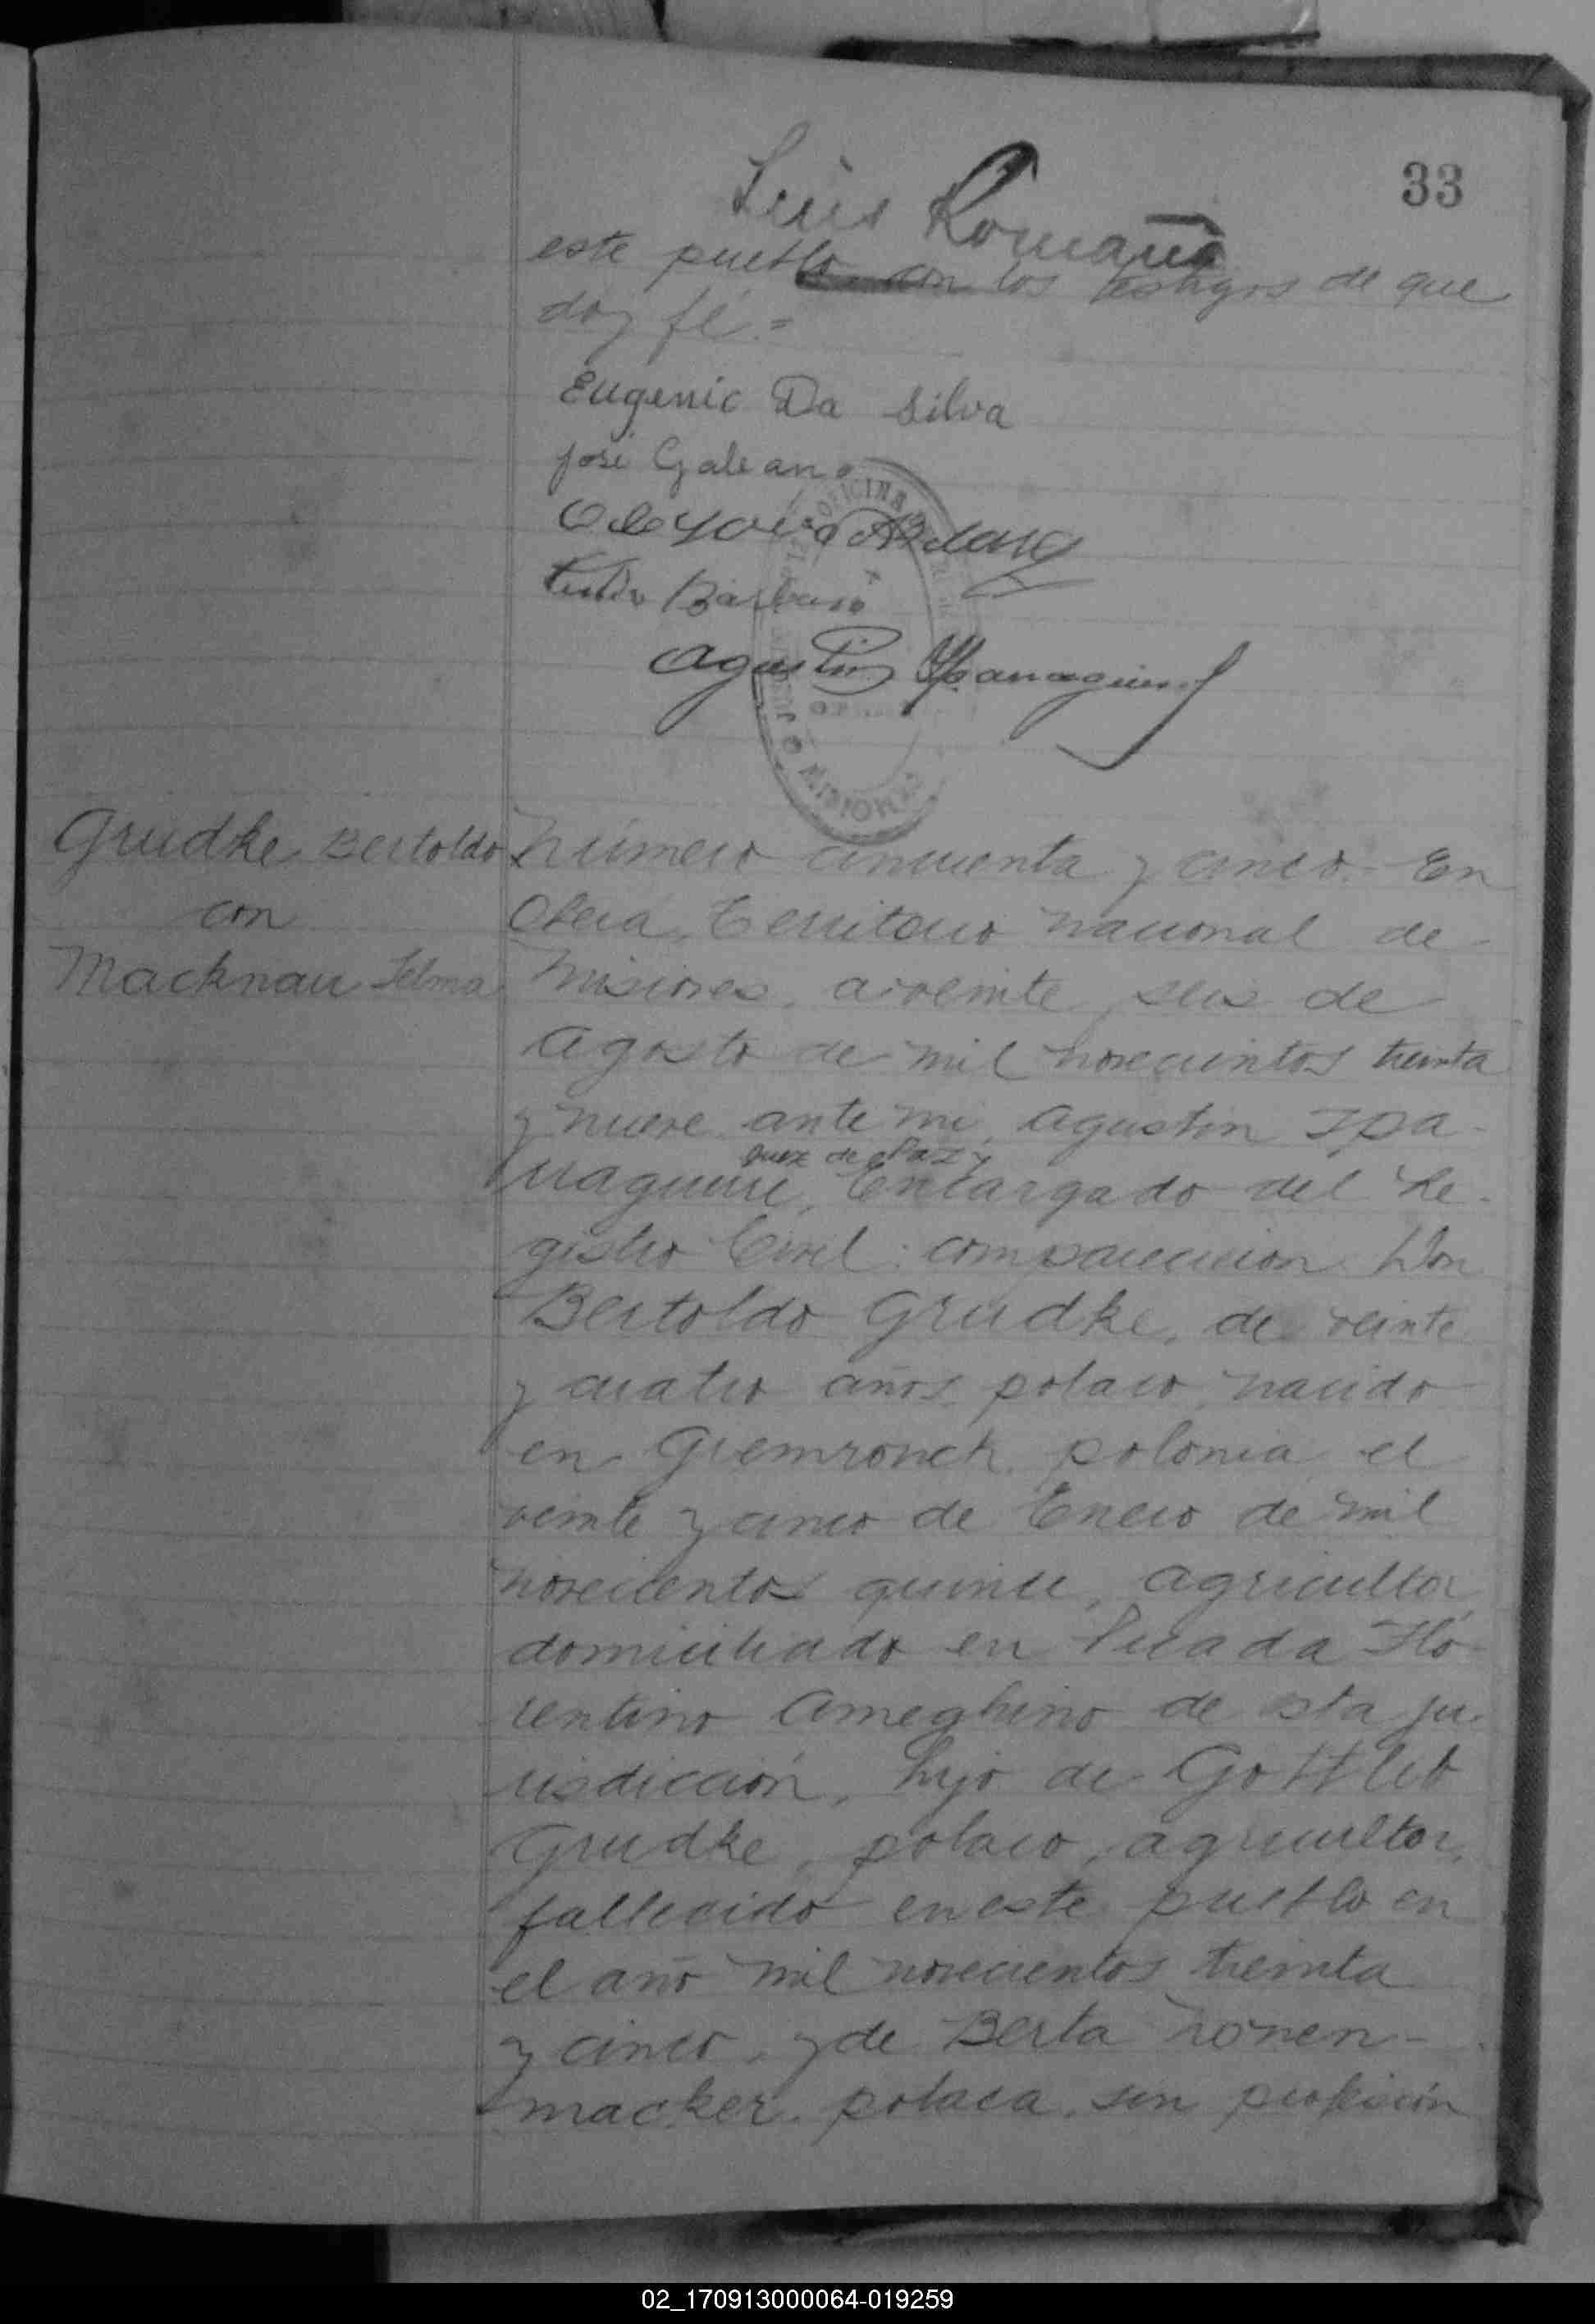 33
Luis Romaña
este pueblo con los testigos de que
doy fé.=
Eugenio Da Silva
José Galeano
Barbaro
Agustin Yparraguirre
OFICINA
MISIONES
Grudke Bertoldo
con
Macknau Selma
Número cincuenta y cinco.- En
Oberá, Territorio Nacional de
Misiones, a veinte seis de
Agosto de mil novecientos treinta
y nueve ante mi, Agustin Ypa-
Juez de Paz y
rraguirre, Encargado del Re-
gistro Civil: comparecieron Don
Bertoldo Grudke, de veinte
y cuatro años, polaco, nacido
en polonia el
veinte y cinco de Enero de mil
novecientos quince, agricultor
domiciliado en Picada Flo-
rentino Ameghino de esta ju-
risdicción, hijo de Gottlieb
Grudke, polaco, agricultor,
fallecido en este pueblo en
el año mil novecientos treinta
y cinco, y de Berta Zonen-
macker, polaca, sin profesión
02_170913000064-019259